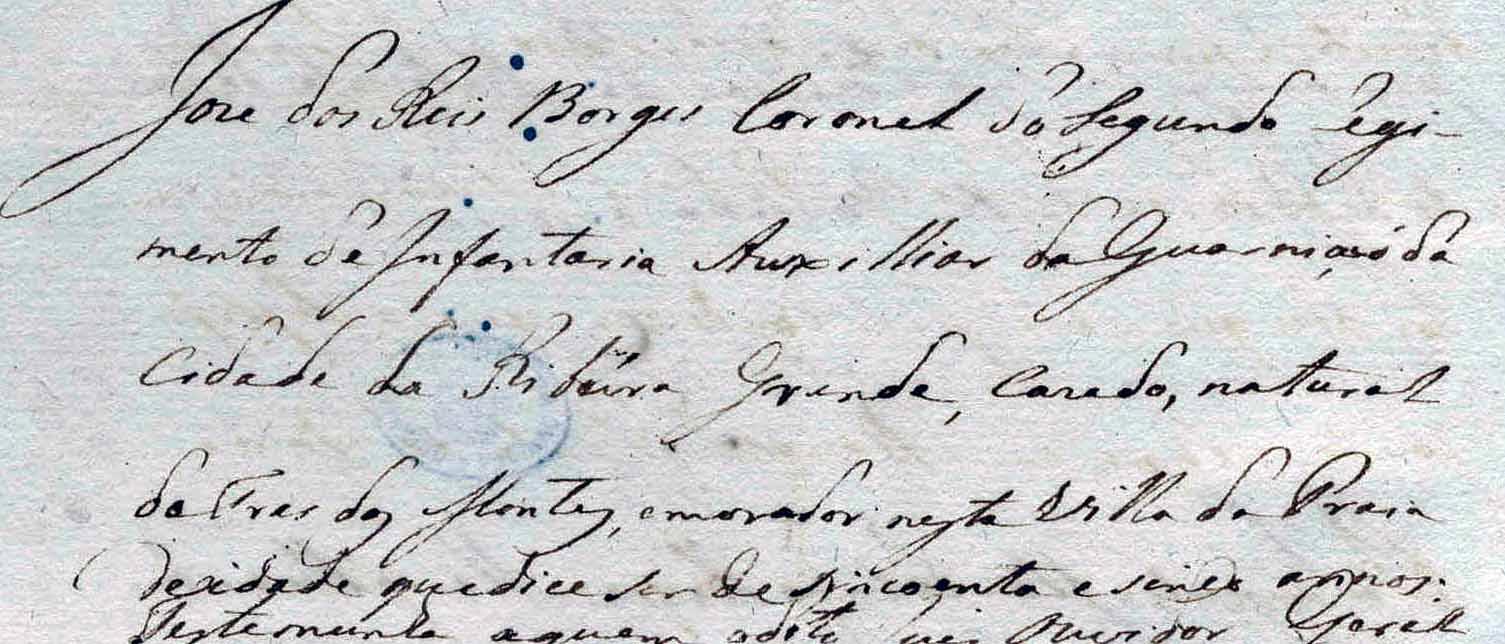 Joze dos Reis Borges Coronel do Segundo Regi-
mento de Infantaria Auxilliar da Guarnição da
Cidade da Ribeira Grande, cazado, natural
da Tras dos Montes, emorador nesta Villa da Praia
dexidade quedice ser de sincoenta e sinco annos:
Testemunha aquem odito Ouvidor Geral